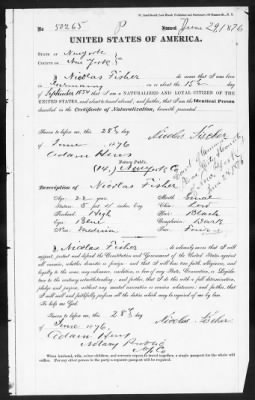 No 50265
Issued June 29, 1876
UNITED STATES OF AMERICA.
STATE OF New York
COUNTY OF New York
I, Nicolas Fisher do swear that I was born
in Germany on or about the
September 1854 that I am a NATURALIZED AND LOYAL CITIZEN OF THE
UNITED STATES, and about to travel abroad; and further, that I am the Identical Person
described in the Certificate of Naturalization, presented herewith.
Sworn to before me, this 28th day
of June 1876
Nicolas Fischer
Notary Public.
New York Co
Description of Nicolas Fisher
Age: 22 years
Mouth: Small
Stature: 5 feet inches, Eng.
Forehead: High
Hair: Black
Eyes: Blue
Nose: Medium
I, Nicolas Fisher do solemnly swear that I will
support, protect and defend the Constitution and Government of the United States against
all enemies, whether domestic or foreign; and that I will bear true faith, allegiance, and
loyalty to the same, any ordinance, resolution, or law of any State, Convention, or Legisla-
ture to the contrary notwithstanding; and further, that I do this with a full determination,
pledge and purpose, without any mental reservation or evasion whatsoever; and further, that
I will well and faithfully perform all the duties which may be required of me by law.
So help me God.
Sworn to before me, this 28th day
of June 1876.
Nicolas Fischer
Notary Public
When husband, wife, minor children, and servants expect to travel together, a single passport for the whole will
suffice. For any other person in the party a separate passport will be required.